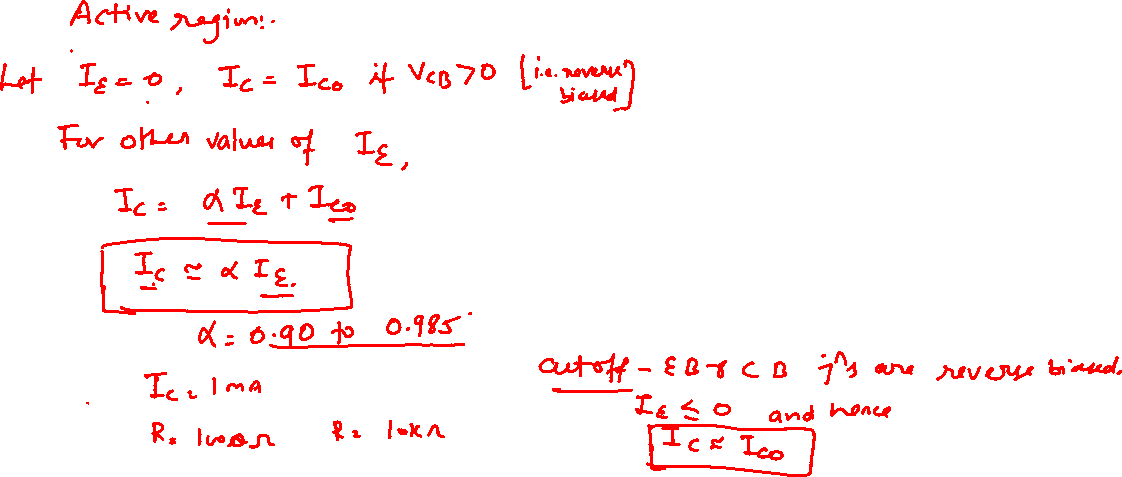 Active region:-
Let I_E = 0, I_C = I_CO if V_CB > 0 [i.e. reverse biased]
For other values of I_E,
I_C = α I_E + I_CO
I_C ≃ α I_E.
α = 0.90 to 0.985
I_C = 1 mA
R = 1000 Ω R = 10KΩ
Cutoff - EB & CB jⁿs are reverse biased.
I_E ≤ 0 and hence
I_C ≈ I_CO